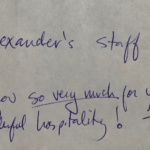 exander's staff
ou so very much for
ful hospitality!